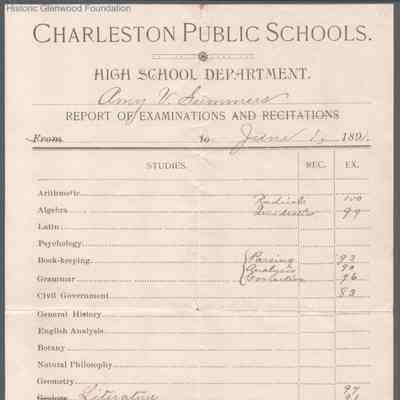 Historic Glenwood Foundation
CHARLESTON PUBLIC SCHOOLS.
HIGH SCHOOL DEPARTMENT.
Amy V. Summers
REPORT OF EXAMINATIONS AND RECITATIONS
From to June 1, 1891.
STUDIES. REC. EX.
Arithmetic Radicals 100
Algebra Quadratics 99
Latin
Psychology
Book-keeping Parsing 93
Analysis 90
Grammar Correction 96
Civil Government 83
General History
English Analysis
Botany
Natural Philosophy
Geometry 97
Geology Literature 91